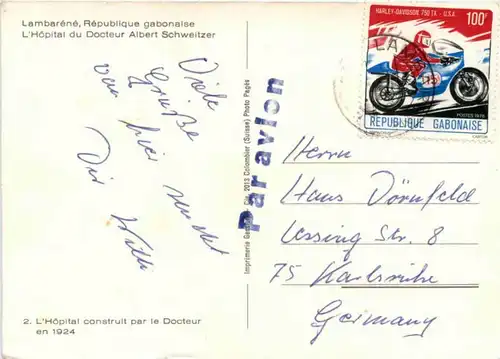 Lambaréné, République gabonaise
L'Hôpital du Docteur Albert Schweitzer
Viele
Grüße
von hier sendet
Dir Willi
2. L'Hôpital construit par le Docteur
en 1924
Par avion
Cie, 2013 Colombier (Suisse) Photo Pagès
HARLEY-DAVIDSON 750 TX - U.S.A.
100F
REPUBLIQUE GABONAISE
POSTES 1976
Herrn
Hans Dörnfeld
Lessing Str. 8
75 Karlsruhe
Germany